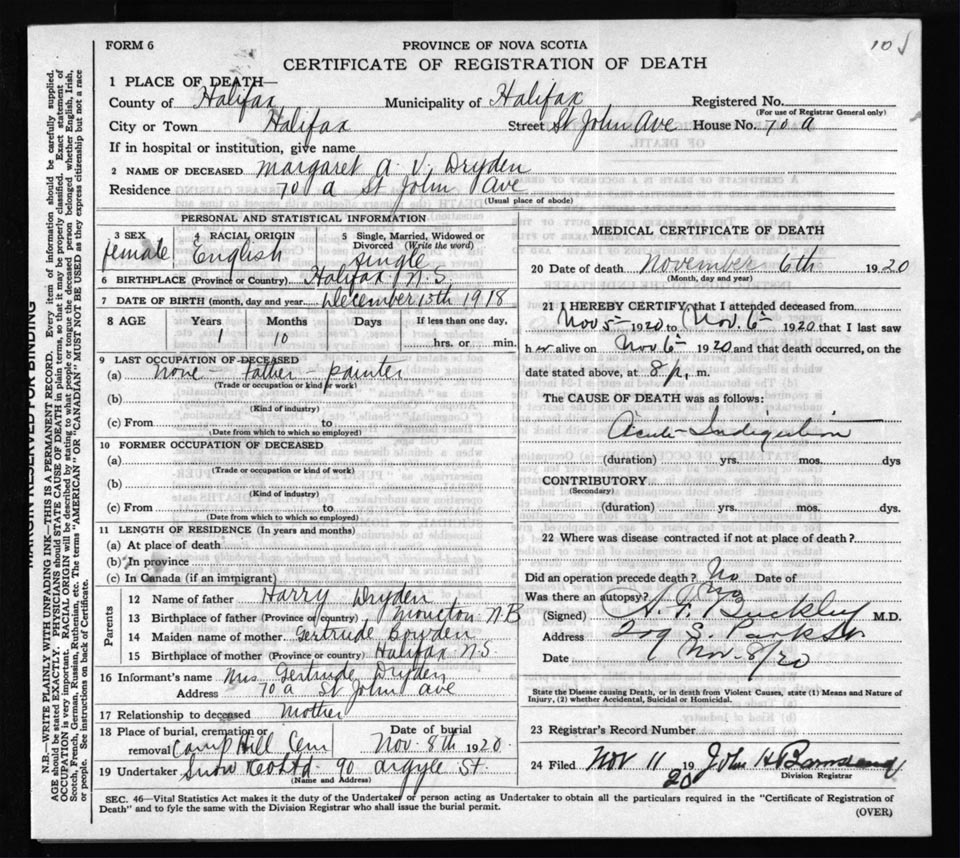 FORM 6
PROVINCE OF NOVA SCOTIA
CERTIFICATE OF REGISTRATION OF DEATH
1 PLACE OF DEATH—
County of Halifax Municipality of Halifax Registered No.
(For use of Registrar General only)
City or Town Halifax Street St John Ave House No. 70 a
If in hospital or institution, give name
2 NAME OF DECEASED Margaret A. V. Dryden
Residence 70 a St John Ave
(Usual place of abode)
PERSONAL AND STATISTICAL INFORMATION
3 SEX 4 RACIAL ORIGIN 5 Single, Married, Widowed or Divorced (Write the word)
female English single
6 BIRTHPLACE (Province or Country) Halifax N.S.
7 DATE OF BIRTH (month, day and year) December 15th 1918
8 AGE Years Months Days If less than one day,
1 10 hrs. or min.
9 LAST OCCUPATION OF DECEASED
(a) None - Father - painter
(Trade or occupation or kind of work)
(b)
(Kind of industry)
(c) From to
(Date from which to which so employed)
10 FORMER OCCUPATION OF DECEASED
(a)
(Trade or occupation or kind of work)
(b)
(Kind of industry)
(c) From to
(Date from which to which so employed)
11 LENGTH OF RESIDENCE (In years and months)
(a) At place of death
(b) In province
(c) In Canada (if an immigrant)
Parents
12 Name of father Harry Dryden
13 Birthplace of father (Province or country) Moncton N B
14 Maiden name of mother Gertrude Bowden
15 Birthplace of mother (Province or country) Halifax N.S.
16 Informant's name Mrs Gertrude Dryden
Address 70 a St John Ave
17 Relationship to deceased Mother
18 Place of burial, cremation or removal Camp Hill Cem Date of burial Nov. 8th 1920.
19 Undertaker Snow & Co Ltd 90 Argyle St.
(Name and Address)
MEDICAL CERTIFICATE OF DEATH
20 Date of death November 6th 1920
(Month, day and year)
21 I HEREBY CERTIFY, that I attended deceased from
Nov 5th 1920 to Nov. 6th 1920 that I last saw
her alive on Nov. 6th 1920 and that death occurred, on the
date stated above, at 8 p. m.
The CAUSE OF DEATH was as follows:
Acute Indigestion
(duration) yrs. mos. dys
CONTRIBUTORY
(Secondary)
(duration) yrs. mos. dys.
22 Where was disease contracted if not at place of death?
Did an operation precede death? No Date of
Was there an autopsy? No
(Signed) Buckley M.D.
Address 209 S. Park St
Date Nov. 8/20
State the Disease causing Death, or in death from Violent Causes, state (1) Means and Nature of
Injury, (2) whether Accidental, Suicidal or Homicidal.
23 Registrar's Record Number
24 Filed Nov 11 1920 John H
Division Registrar
SEC. 46—Vital Statistics Act makes it the duty of the Undertaker or person acting as Undertaker to obtain all the particulars required in the "Certificate of Registration of
Death" and to fyle the same with the Division Registrar who shall issue the burial permit.
(OVER)
MARGIN RESERVED FOR BINDING
N.B.—WRITE PLAINLY WITH UNFADING INK—THIS IS A PERMANENT RECORD. Every item of information should be carefully supplied.
AGE should be stated EXACTLY. PHYSICIANS should STATE CAUSE OF DEATH in plain terms, so that it may be properly classified. Exact statement of
OCCUPATION is very important. RACIAL ORIGIN will be described by stating to what people or tongue the deceased person belonged whether English, Irish,
Scotch, French, German, Russian, Ruthenian, etc. The terms "AMERICAN" OR "CANADIAN" MUST NOT BE USED as they express citizenship but not a race
or people. See instructions on back of Certificate.